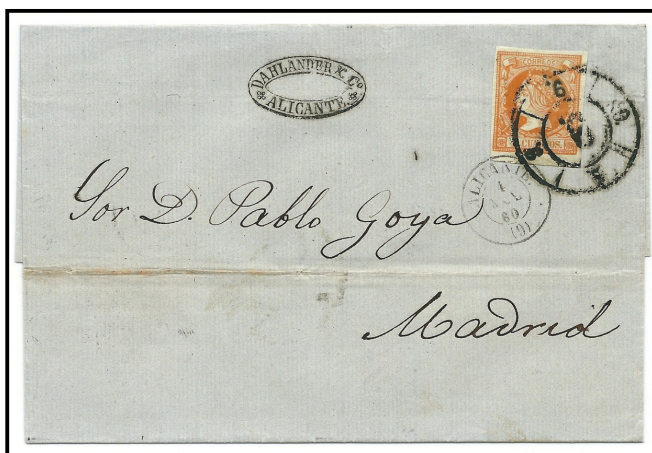 DAHLANDER & Co
ALICANTE
CORREOS
CUARTOS
ALICANTE
1
JUL
60
(9)
Sor D. Pablo Goya
Madrid